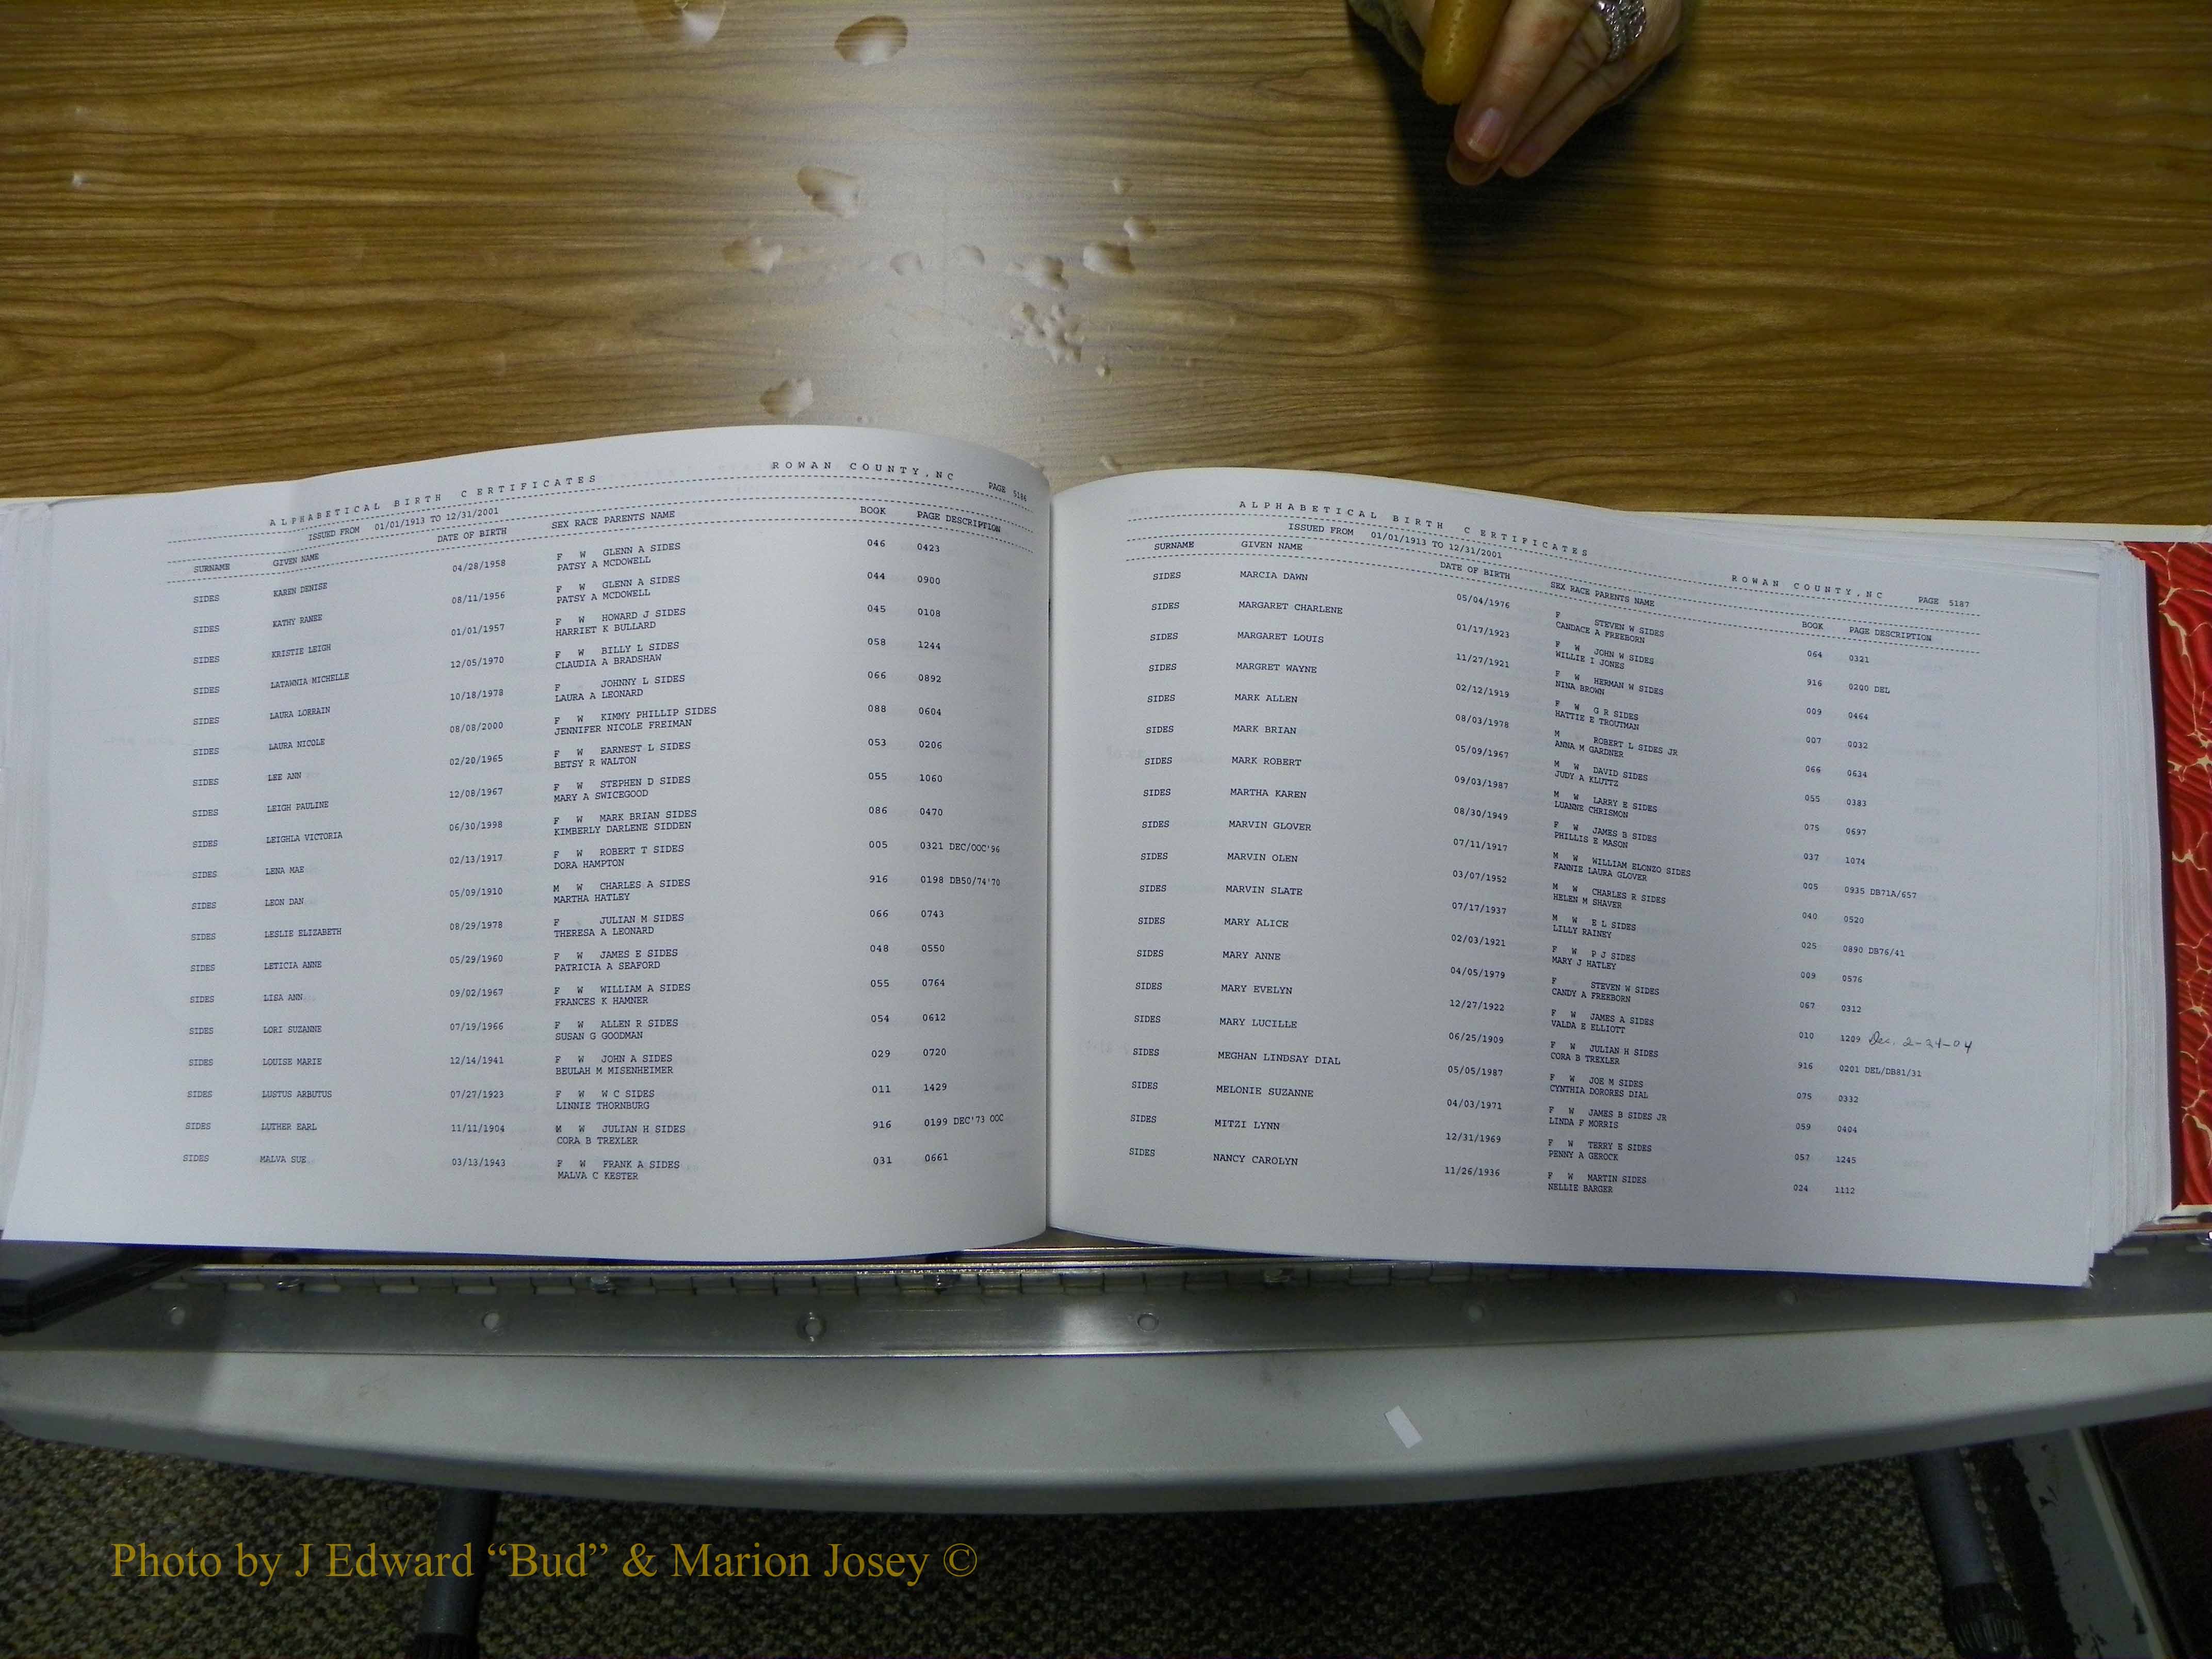 ALPHABETICAL BIRTH CERTIFICATES ROWAN COUNTY,NC PAGE 5186
ISSUED FROM 01/01/1913 TO 12/31/2001
SURNAME GIVEN NAME DATE OF BIRTH SEX RACE PARENTS NAME BOOK PAGE DESCRIPTION
SIDES KAREN DENISE 04/28/1958 F W GLENN A SIDES 046 0423
PATSY A MCDOWELL
SIDES KATHY RANEE 08/11/1956 F W GLENN A SIDES 044 0900
PATSY A MCDOWELL
SIDES KRISTIE LEIGH 01/01/1957 F W HOWARD J SIDES 045 0108
HARRIET K BULLARD
SIDES LATAWNIA MICHELLE 12/05/1970 F W BILLY L SIDES 058 1244
CLAUDIA A BRADSHAW
SIDES LAURA LORRAIN 10/18/1978 F JOHNNY L SIDES 066 0892
LAURA A LEONARD
SIDES LAURA NICOLE 08/08/2000 F W KIMMY PHILLIP SIDES 088 0604
JENNIFER NICOLE FREIMAN
SIDES LEE ANN 02/20/1965 F W EARNEST L SIDES 053 0206
BETSY R WALTON
SIDES LEIGH PAULINE 12/08/1967 F W STEPHEN D SIDES 055 1060
MARY A SWICEGOOD
SIDES LEIGHLA VICTORIA 06/30/1998 F W MARK BRIAN SIDES 086 0470
KIMBERLY DARLENE SIDDEN
SIDES LENA MAE 02/13/1917 F W ROBERT T SIDES 005 0321 DEC/OOC'96
DORA HAMPTON
SIDES LEON DAN 05/09/1910 M W CHARLES A SIDES 916 0198 DB50/74'70
MARTHA HATLEY
SIDES LESLIE ELIZABETH 08/29/1978 F JULIAN M SIDES 066 0743
THERESA A LEONARD
SIDES LETICIA ANNE 05/29/1960 F W JAMES E SIDES 048 0550
PATRICIA A SEAFORD
SIDES LISA ANN 09/02/1967 F W WILLIAM A SIDES 055 0764
FRANCES K HAMNER
SIDES LORI SUZANNE 07/19/1966 F W ALLEN R SIDES 054 0612
SUSAN G GOODMAN
SIDES LOUISE MARIE 12/14/1941 F W JOHN A SIDES 029 0720
BEULAH M MISENHEIMER
SIDES LUSTUS ARBUTUS 07/27/1923 F W W C SIDES 011 1429
LINNIE THORNBURG
SIDES LUTHER EARL 11/11/1904 M W JULIAN H SIDES 916 0199 DEC'73 OOC
CORA B TREXLER
SIDES MALVA SUE 03/13/1943 F W FRANK A SIDES 031 0661
MALVA C KESTER
ALPHABETICAL BIRTH CERTIFICATES ROWAN COUNTY,NC PAGE 5187
ISSUED FROM 01/01/1913 TO 12/31/2001
SURNAME GIVEN NAME DATE OF BIRTH SEX RACE PARENTS NAME BOOK PAGE DESCRIPTION
SIDES MARCIA DAWN 05/04/1976 F STEVEN W SIDES 064 0321
CANDACE A FREEBORN
SIDES MARGARET CHARLENE 01/17/1923 F W JOHN W SIDES 916 0200 DEL
WILLIE I JONES
SIDES MARGARET LOUIS 11/27/1921 F W HERMAN W SIDES 009 0464
NINA BROWN
SIDES MARGRET WAYNE 02/12/1919 F W G R SIDES 007 0032
HATTIE E TROUTMAN
SIDES MARK ALLEN 08/03/1978 M ROBERT L SIDES JR 066 0634
ANNA M GARDNER
SIDES MARK BRIAN 05/09/1967 M W DAVID SIDES 055 0383
JUDY A KLUTTZ
SIDES MARK ROBERT 09/03/1987 M W LARRY E SIDES 075 0697
LUANNE CHRISMON
SIDES MARTHA KAREN 08/30/1949 F W JAMES B SIDES 037 1074
PHILLIS E MASON
SIDES MARVIN GLOVER 07/11/1917 M W WILLIAM ELONZO SIDES 005 0935 DB71A/657
FANNIE LAURA GLOVER
SIDES MARVIN OLEN 03/07/1952 M W CHARLES R SIDES 040 0520
HELEN M SHAVER
SIDES MARVIN SLATE 07/17/1937 M W E L SIDES 025 0890 DB76/41
LILLY RAINEY
SIDES MARY ALICE 02/03/1921 F W P J SIDES 009 0576
MARY J HATLEY
SIDES MARY ANNE 04/05/1979 F STEVEN W SIDES 067 0312
CANDY A FREEBORN
SIDES MARY EVELYN 12/27/1922 F W JAMES A SIDES 010 1209 Dec. 2-24-04
VALDA E ELLIOTT
SIDES MARY LUCILLE 06/25/1909 F W JULIAN H SIDES 916 0201 DEL/DB81/31
CORA B TREXLER
SIDES MEGHAN LINDSAY DIAL 05/05/1987 F W JOE M SIDES 075 0332
CYNTHIA DORORES DIAL
SIDES MELONIE SUZANNE 04/03/1971 F W JAMES B SIDES JR 059 0404
LINDA F MORRIS
SIDES MITZI LYNN 12/31/1969 F W TERRY E SIDES 057 1245
PENNY A GEROCK
SIDES NANCY CAROLYN 11/26/1936 F W MARTIN SIDES 024 1112
NELLIE BARGER
Photo by J Edward “Bud” & Marion Josey ©